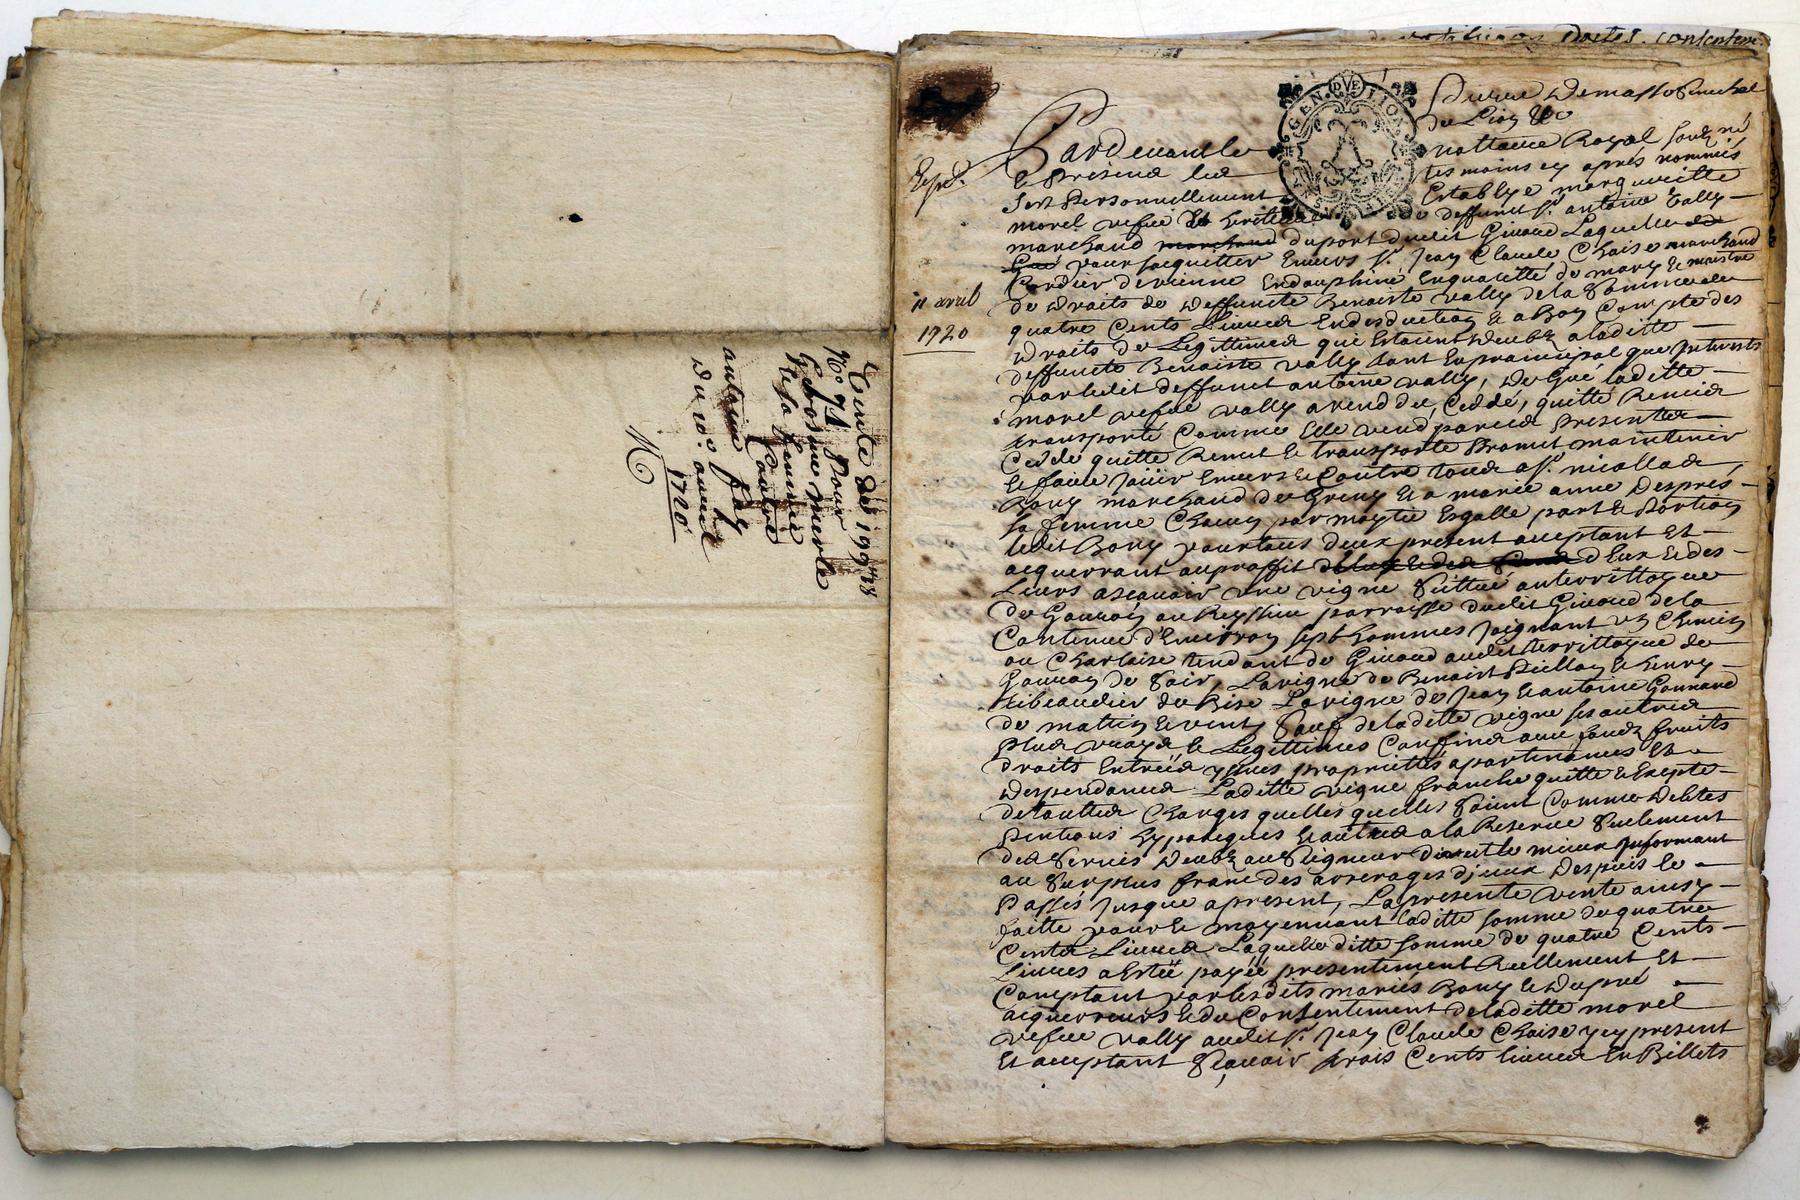 Trente dud 19 9bre
N.o 71 pour
Gelosme merle
Et sa femme
Contre
antoine fay
Du 10.e avril
1720
GEN. DVE LION
Expd.
11 avril
1720
Pardevant le nottaire Royal souz né
Et Presend les tesmoins cy aprés nommés
Sest Personnellement Establye margueritte
morel vefue Et heritiere de deffunct Sr. antoine vally
marchand marchand du port dudit Givord Laquelle
pour sacquitter Enuers Sr. Jean Claude Chaise marchand
Cordier de vienne Endauphiné Enqualitté de mary & maistre
de droits de deffuncte Benoiste vally de la Somme de
quatre Cents Liures En desduction & a Bon Compte des
droits de Legittimes que Estoient deubz a laditte
deffuncte Benoiste vally tant En principal que Interests
par ledit deffunct antoine vally, De Gré laditte
morel vefue vally a vendu, Ceddé, quitté Remis
transporté Comme Elle vend par ces Presentes
Cedde quitte Remet & transporte Promet maintenir
& faire Jouir Enuers & Contre tous a Sr. nicollas
Bony marchand de Greny & a marie anne Despres
sa femme Chacun par moytié Esgalle part & Portion
ledit Bony pour tous deux present acceptant Et
acquerrant au proffit d'Eux & des
Leurs ascauoir une vigne Scittué au territtoyre
de Gourzon au Reyssieu parroisse dudit Givord de la
Contenue d'Enuirron sept hommes Joignant un Chemin
ou Charloire tendant de Givord audit territtoyre de
Gourzon de Soir, La vigne de Benoist Pitiot & henry
tibeaudier de Bise La vigne de Jean & antoine Gonnard
de matin & vent, Sauf de laditte vigne ses autres
Plus vrays & Legittimes Confins auec fonds fruits
droits Entrées yssues propriettés apartenances Et
Despendances Laditte vigne franche quitte & Exepte
de touttes Charges quelles quelles Soient Comme Debtes
Pentions hypoteques & autres a la Reserue Seulement
des Seruis deubz au Seigneur direct le mieux Informant
au Surplus franc des arrerages d'jceux Despuis le
Passés Jusque a present, La presente vente ainsy
faitte pour & moyennant laditte somme de quatre
Cents Liures Laquelle ditte somme de quatre Cents
Liures a Estée payée presentement Reellement Et
Comptant par lesdits mariés Bony & Dupré
acquerreurs & du Consentement de laditte morel
vefue vally audit Sr. Jean Claude Chaise ycy present
Et acceptant Scauoir trois Cents liures En Billets